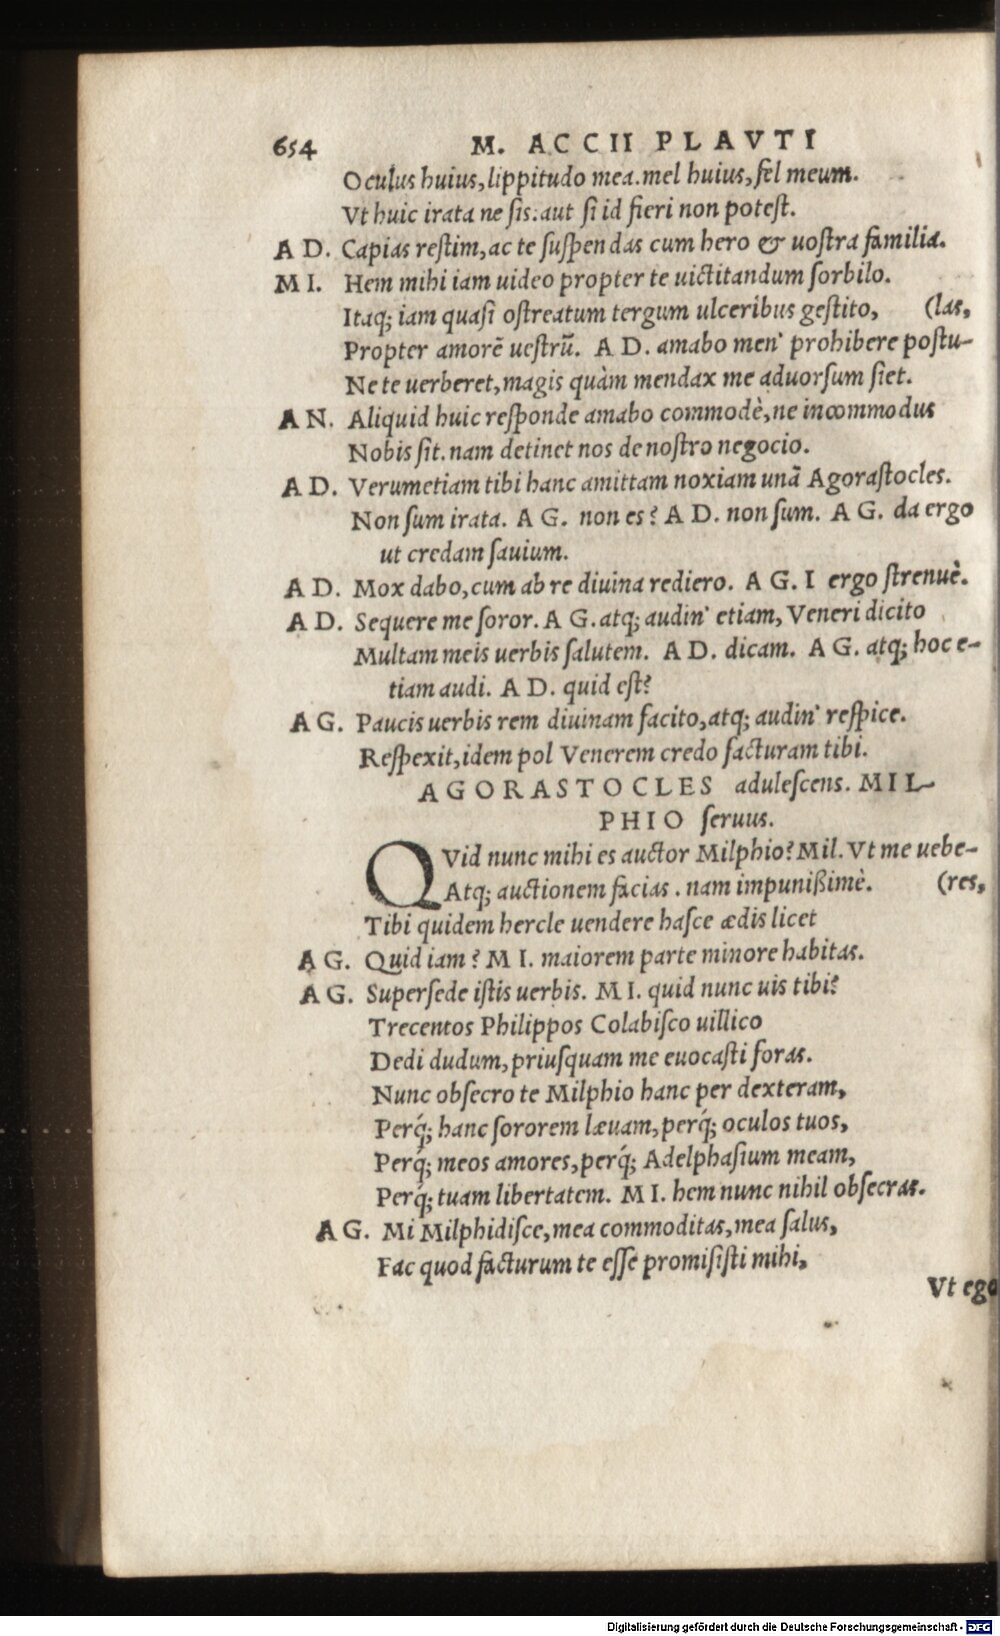 654 M. ACCII PLAVTI
Oculus huius, lippitudo mea. mel huius, fel meum.
Vt huic irata ne sis. aut si id fieri non potest.
AD. Capias restim, ac te suspendas cum hero & uostra familia.
MI. Hem mihi iam uideo propter te uictitandum sorbilo.
Itaq; iam quasi ostreatum tergum ulceribus gestito, (las,
Propter amorē uestrū. AD. amabo men' prohibere postu-
Ne te uerberet, magis quàm mendax me aduorsum siet.
AN. Aliquid huic responde amabo commodè, ne incommodus
Nobis sit. nam detinet nos de nostro negocio.
AD. Verumetiam tibi hanc amittam noxiam unā Agorastocles.
Non sum irata. AG. non es? AD. non sum. AG. da ergo
ut credam sauium.
AD. Mox dabo, cum ab re diuina rediero. AG. I ergo strenuè.
AD. Sequere me soror. AG. atq; audin' etiam, Veneri dicito
Multam meis uerbis salutem. AD. dicam. AG. atq; hoc e-
tiam audi. AD. quid est?
AG. Paucis uerbis rem diuinam facito, atq; audin' respice.
Respexit, idem pol Venerem credo facturam tibi.
AGORASTOCLES adulescens. MIL-
PHIO seruus.
QVid nunc mihi es auctor Milphio? Mil. Vt me uebe-
Atq; auctionem facias. nam impunißimè. (res,
Tibi quidem hercle uendere hasce ædis licet
AG. Quid iam? MI. maiorem parte minore habitas.
AG. Supersede istis uerbis. MI. quid nunc uis tibi?
Trecentos Philippos Colabisco uillico
Dedi dudum, priusquam me euocasti foras.
Nunc obsecro te Milphio hanc per dexteram,
Perq́; hanc sororem læuam, perq́; oculos tuos,
Perq́; meos amores, perq́; Adelphasium meam,
Perq́; tuam libertatem. MI. hem nunc nihil obsecras.
AG. Mi Milphidisce, mea commoditas, mea salus,
Fac quod facturum te esse promisisti mihi,
Vt ego
Digitalisierung gefördert durch die Deutsche Forschungsgemeinschaft - DFG